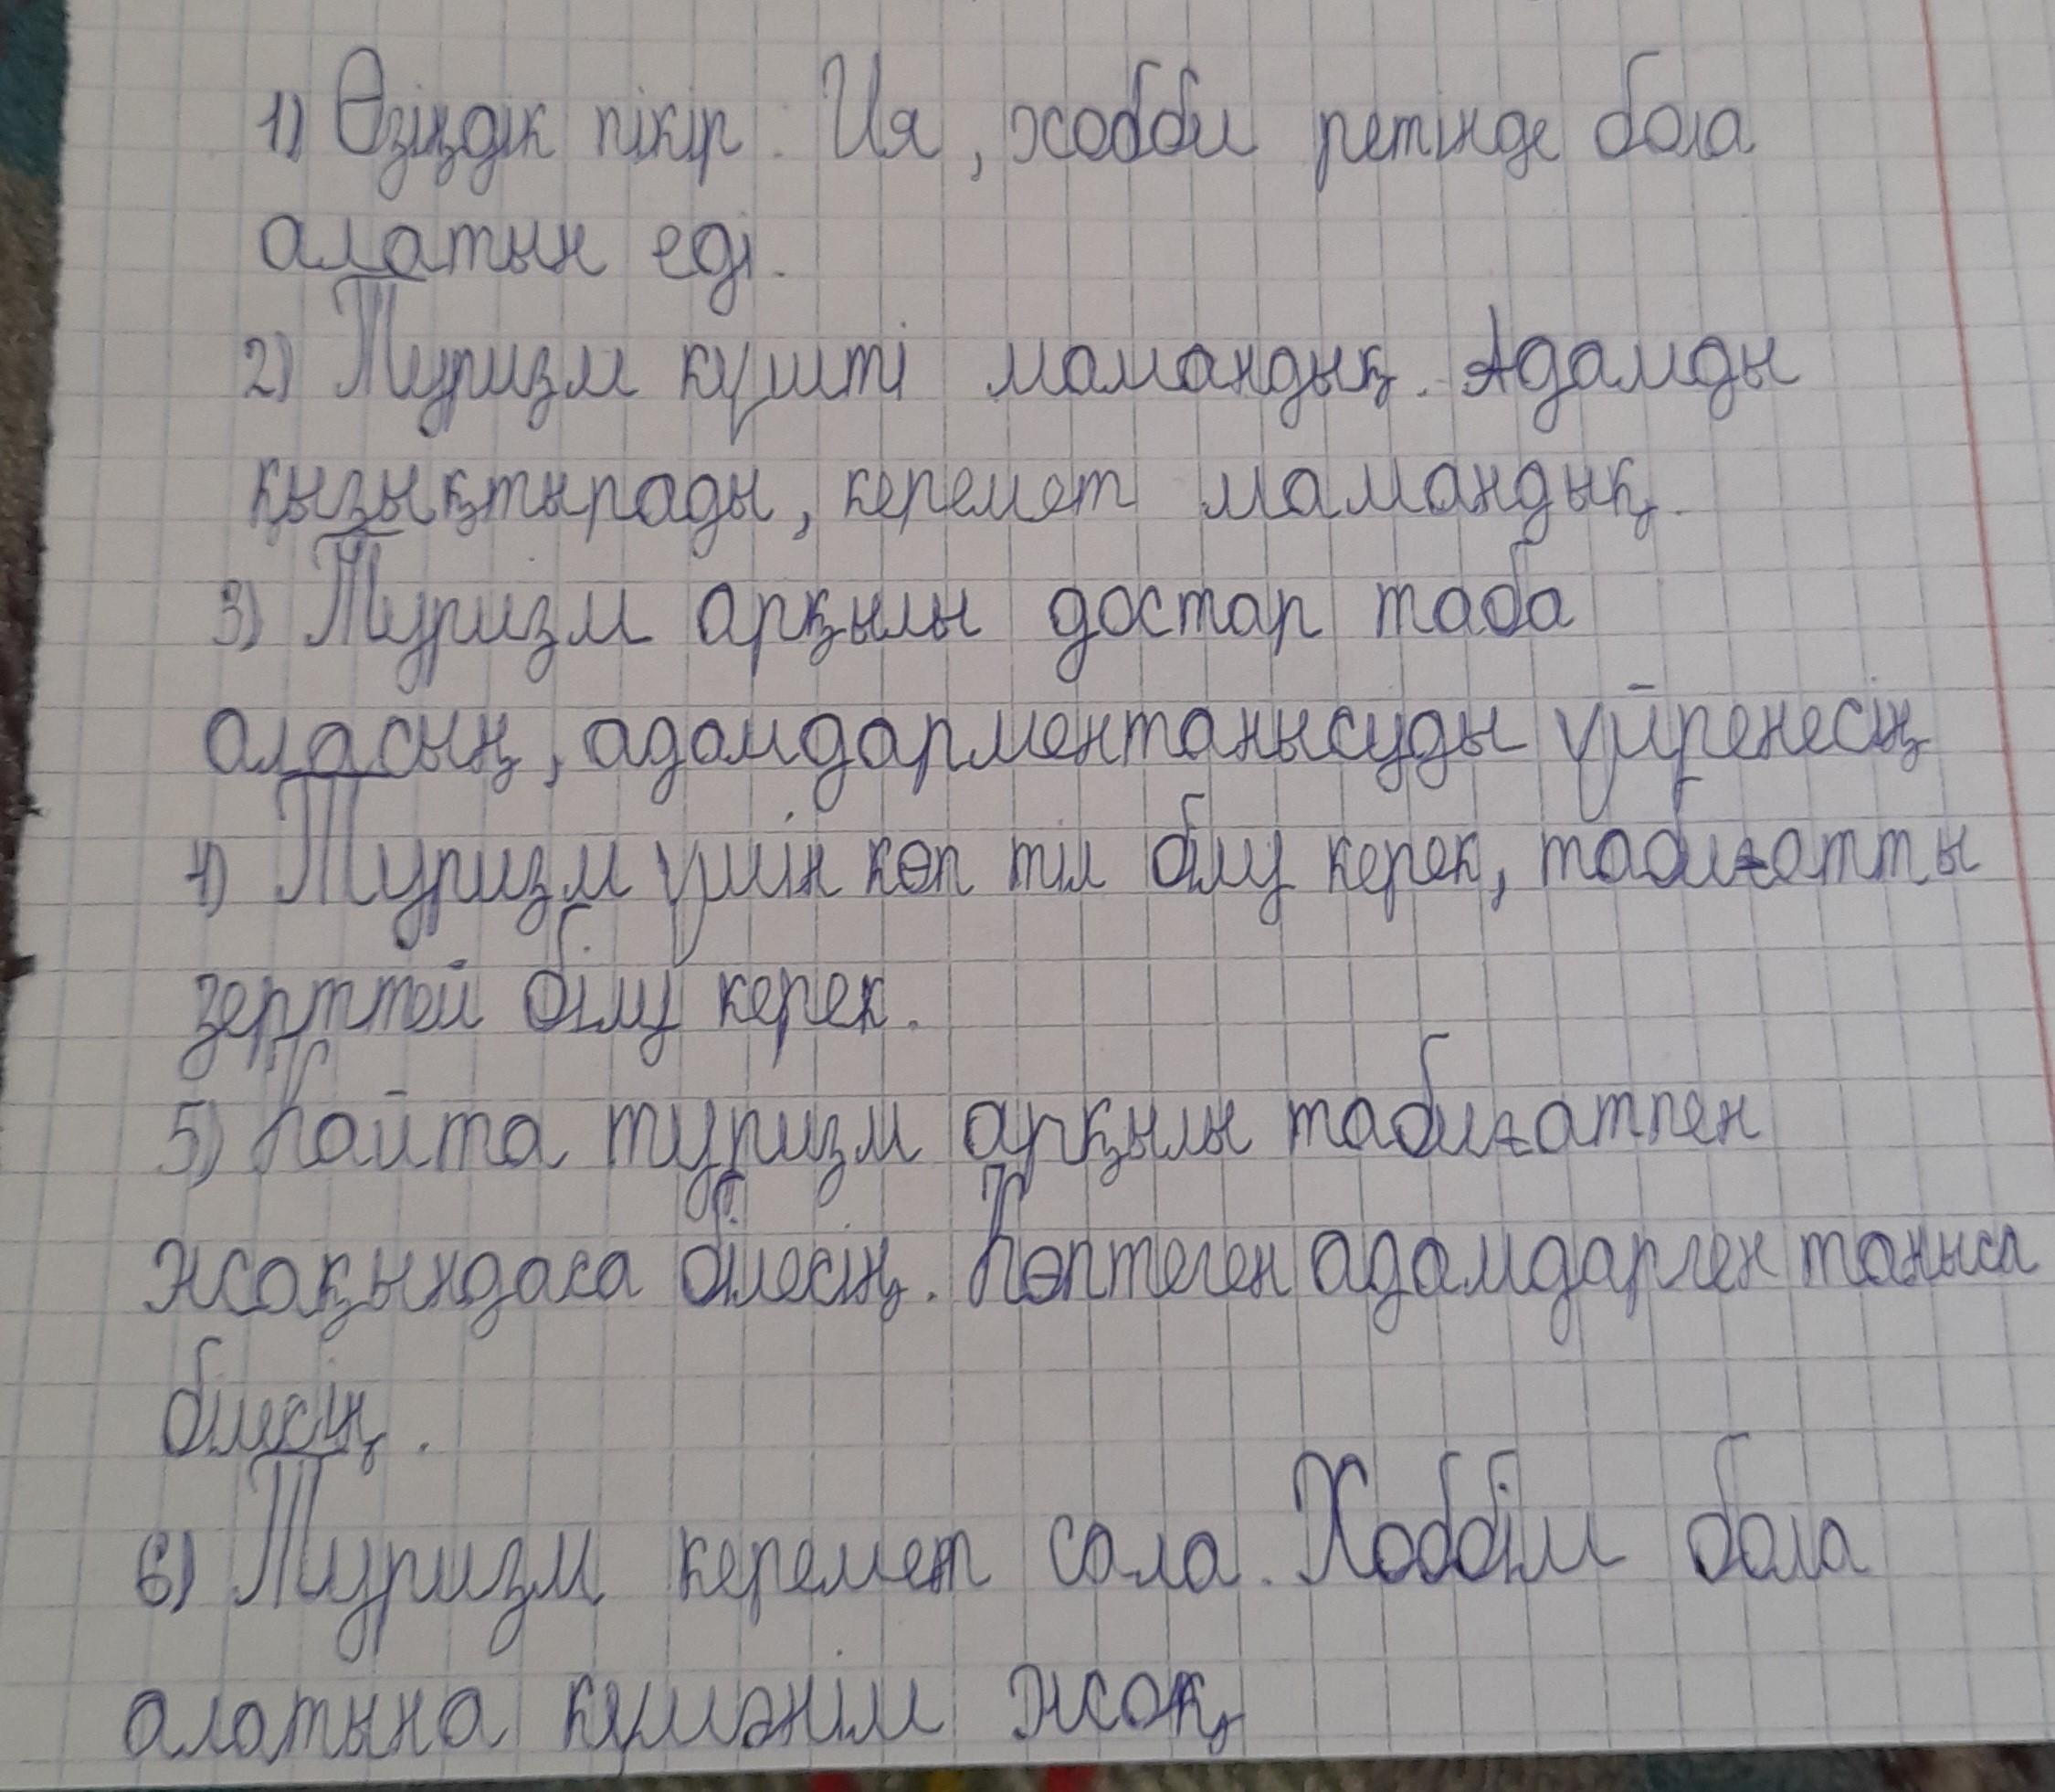 1) Өзіңдік пікір. Ия, хобби ретінде бола
алатын еді.
2) Туризм күшті мамандық. Адамды
қызықтырады, керемет мамандық.
3) Туризм арқылы достар таба
аласың, адамдарментанысуды үйренесің
4) Туризм үшін көп тіл білу керек, табиғатты
зерттей білу керек.
5) Қайта туризм арқылы табиғатпен
жақындаса білесің. Көптеген адамдармен таныса
білесің.
6) Туризм керемет сала. Хоббім бола
алатына күмәнім жоқ